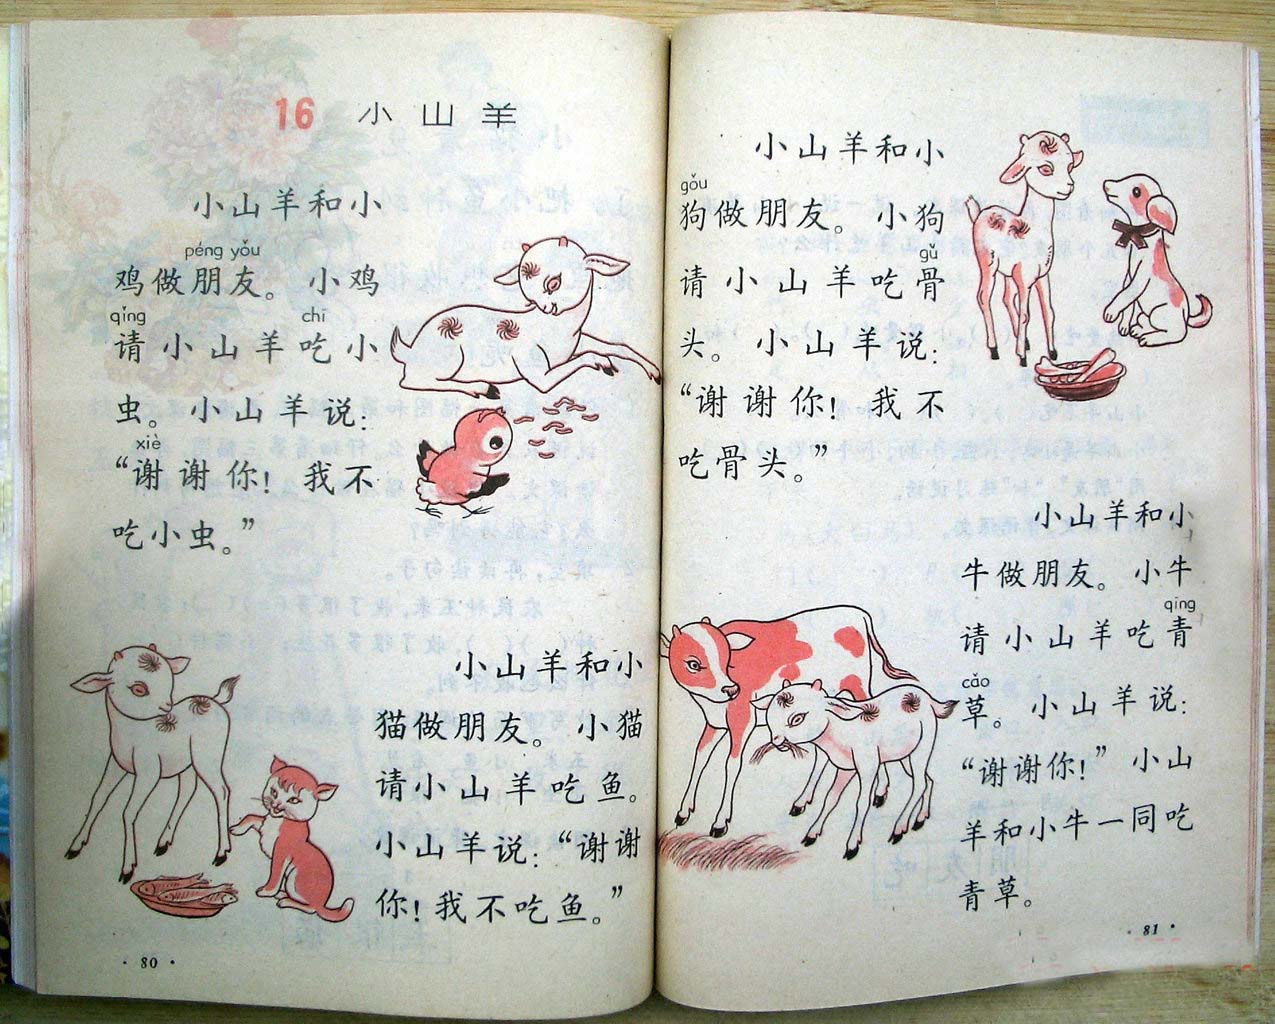 16 小山羊
小山羊和小
péng yǒu
鸡做朋友。小鸡
qǐng chī
请小山羊吃小
虫。小山羊说：
xiè
“谢谢你！我不
吃小虫。”
小山羊和小
猫做朋友。小猫
请小山羊吃鱼。
小山羊说：“谢谢
你！我不吃鱼。”
· 80 ·
小山羊和小
gǒu
狗做朋友。小狗
gǔ
请小山羊吃骨
头。小山羊说：
“谢谢你！我不
吃骨头。”
小山羊和小
牛做朋友。小牛
qīng
请小山羊吃青
cǎo
草。小山羊说：
“谢谢你！”小山
羊和小牛一同吃
青草。
· 81 ·